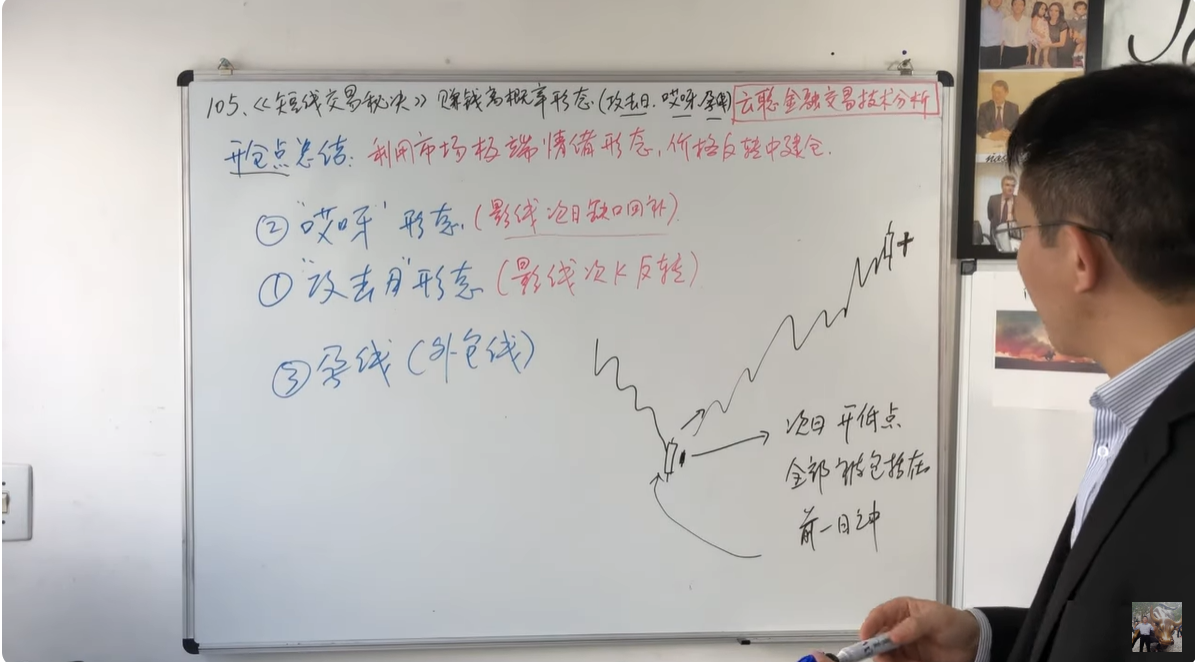 105、《短线交易秘决》赚钱高概率形态(攻击日.哎呀.孕线) 云聪金融交易技术分析
开仓点总结: 利用市场极端情绪形态,价格反转中建仓.
② "哎呀" 形态.(影线次日缺口回补).
① "攻击日"形态 (影线次K反转)
③ 孕线 (外包线)
次日 开低点
全部被包括在
前一日之中